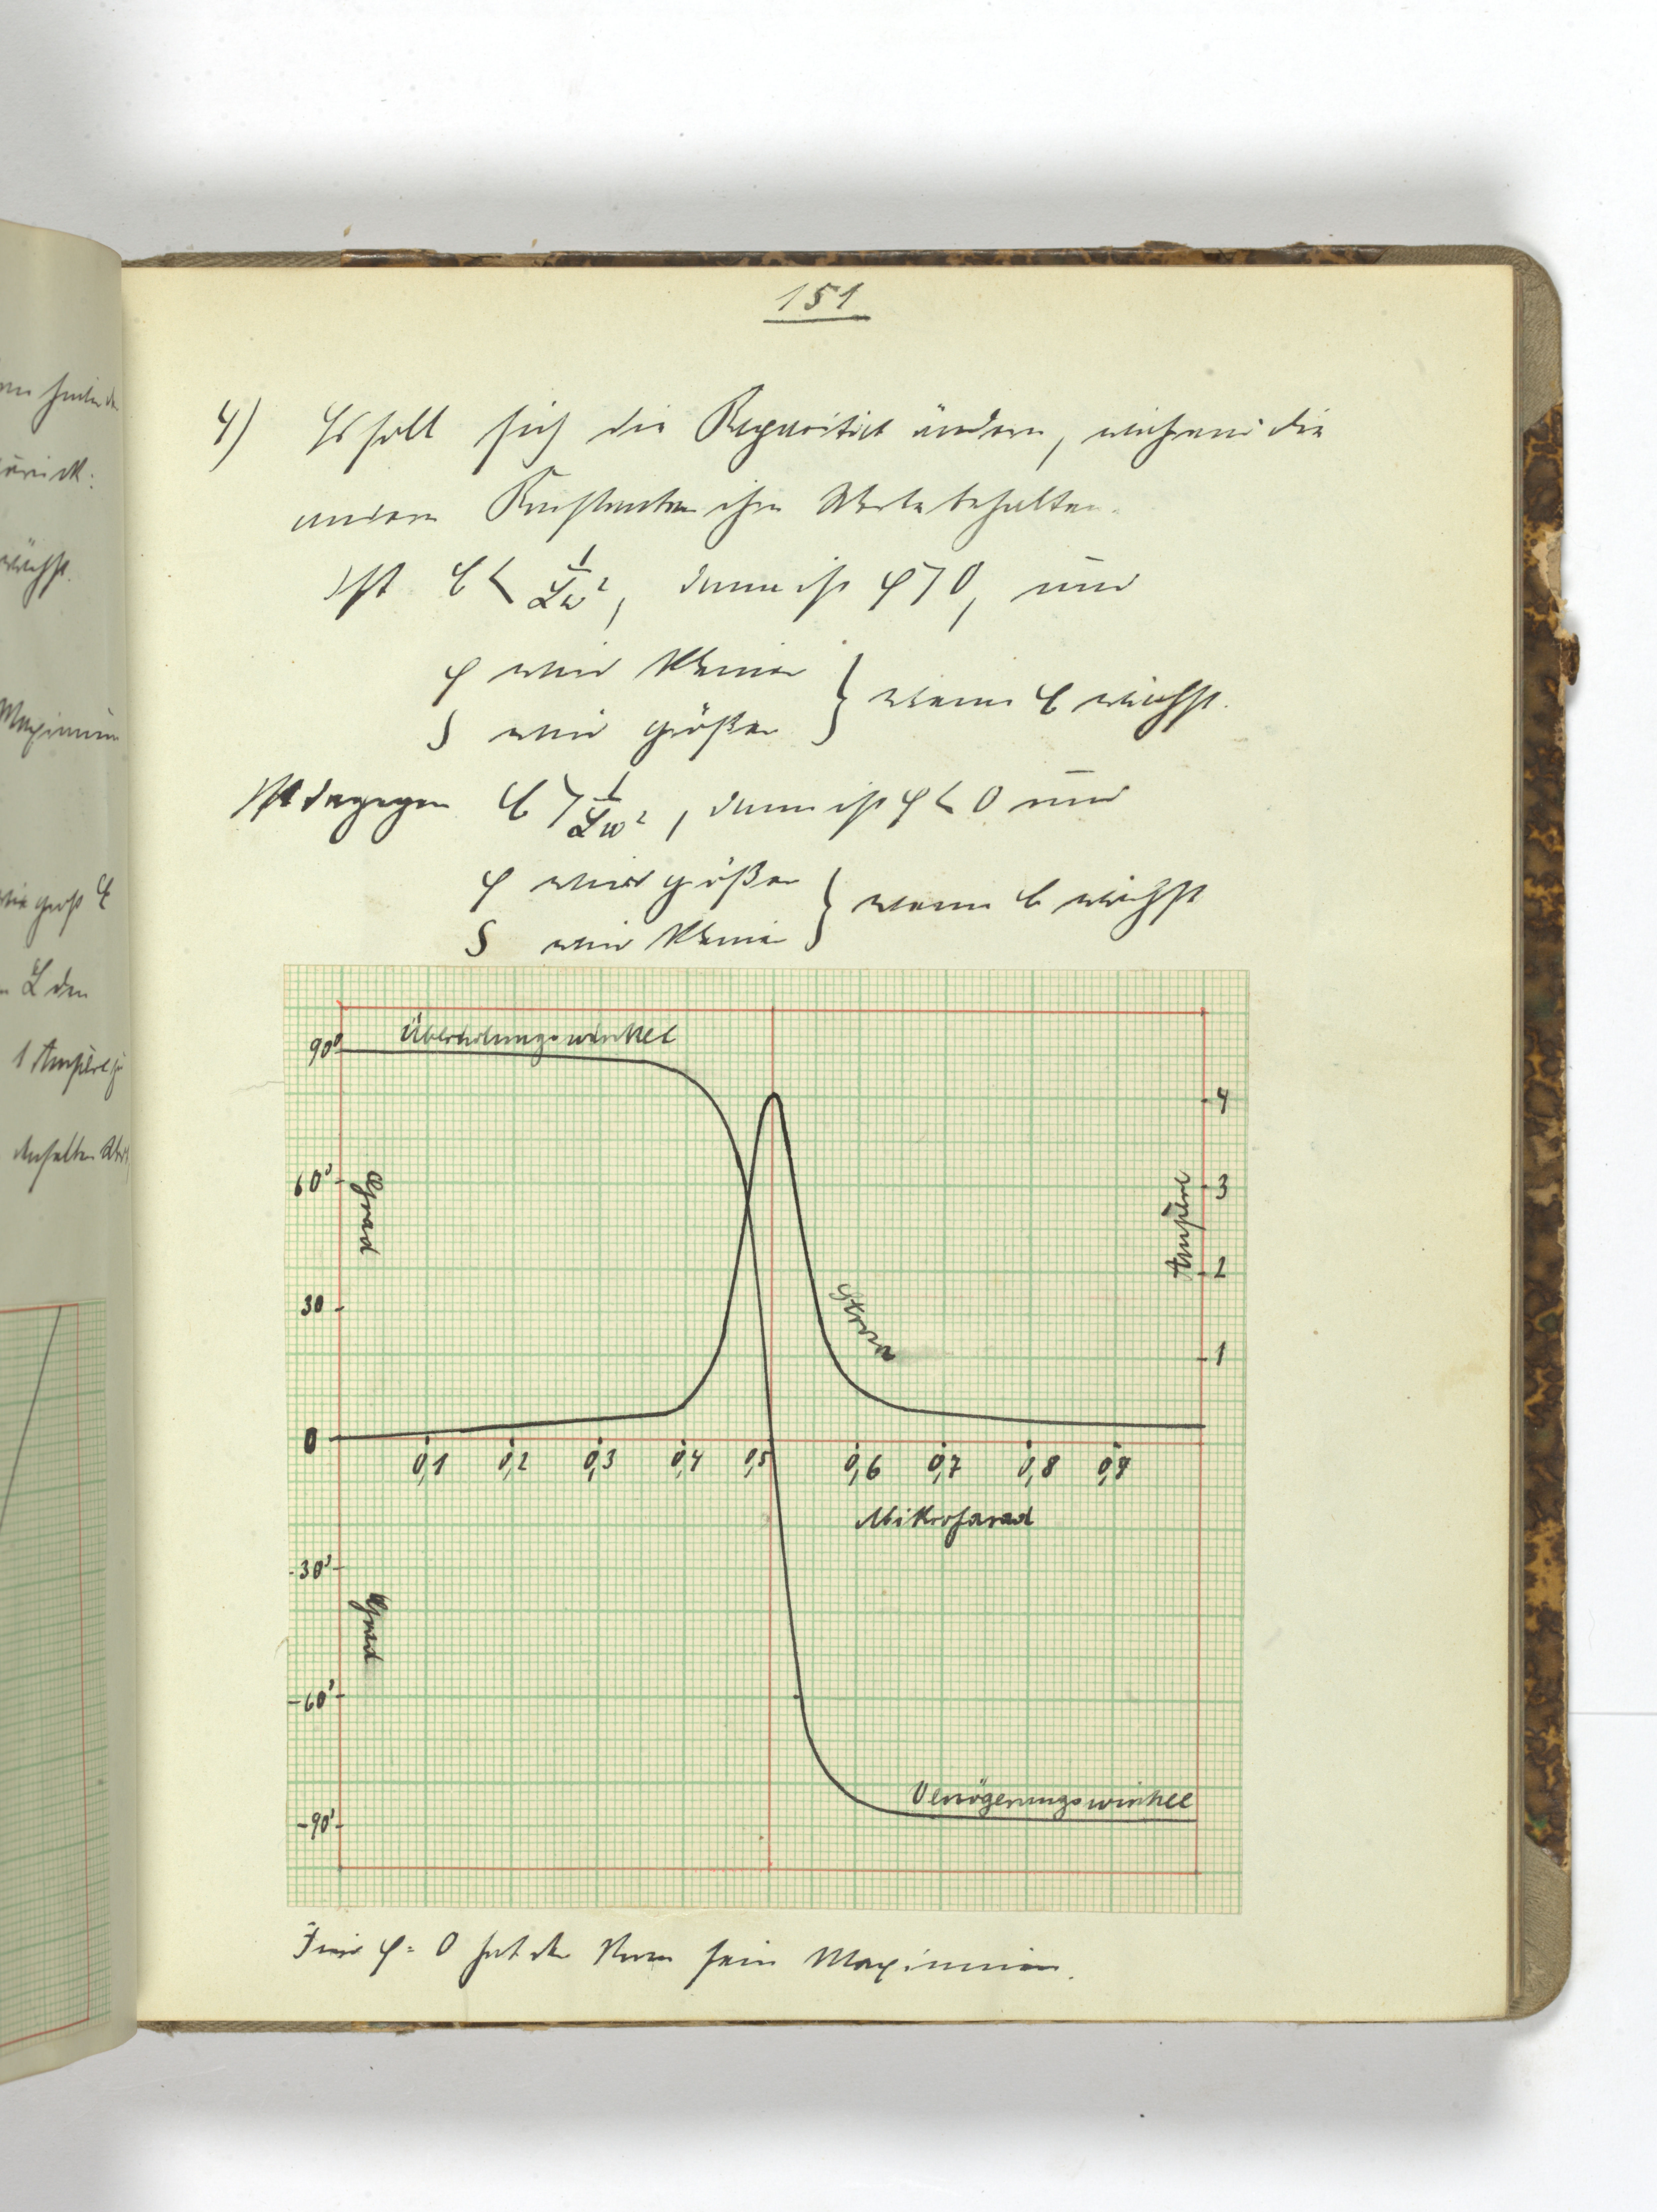 151
4) Es soll sich die Kapacität ändern, während die
andern Konstanten ihre Werte behalten.
Ist C < 1/Lω², dann ist φ > 0, und
φ wird kleiner
J wird größer } wenn C wächst.
Ist dagegen C > 1/Lω², dann ist φ < 0 und
φ wird größer
J wird kleiner } wenn C wächst
Überholungswinkel
90°
4
60°
Grad
3
Ampere
2
30
Strom
1
0
0,1 0,2 0,3 0,4 0,5 0,6 0,7 0,8 0,9
Mikrofarad
-30°
Grad
-60°
Verzögerungswinkel
-90°
Für φ = 0 hat der Strom sein Maximum.
zurück:
wächst.
Maximum
wie groß C
L den
1 Ampere